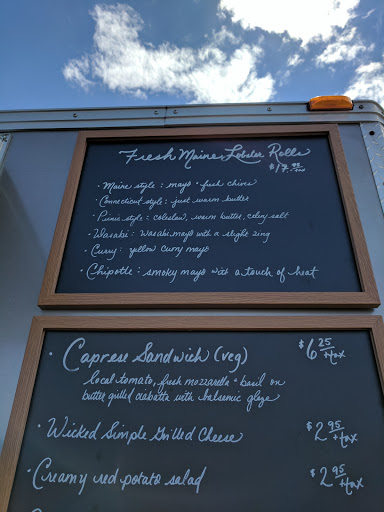 Fresh Maine Lobster Rolls
$17.95 +tax
· Maine style: mayo + fresh chives
· Connecticut style: just warm butter
· Picnic style: coleslaw, warm butter, celery salt
· Wasabi: Wasabi mayo with a slight zing
· Curry: yellow curry mayo
· Chipotle: smoky mayo with a touch of heat
· Caprese Sandwich (veg) $6.25 +tax
local tomato, fresh mozzarella + basil on
butter grilled ciabatta with balsamic glaze
· Wicked Simple Grilled Cheese $2.95 +tax
· Creamy red potato salad $2.95 +tax